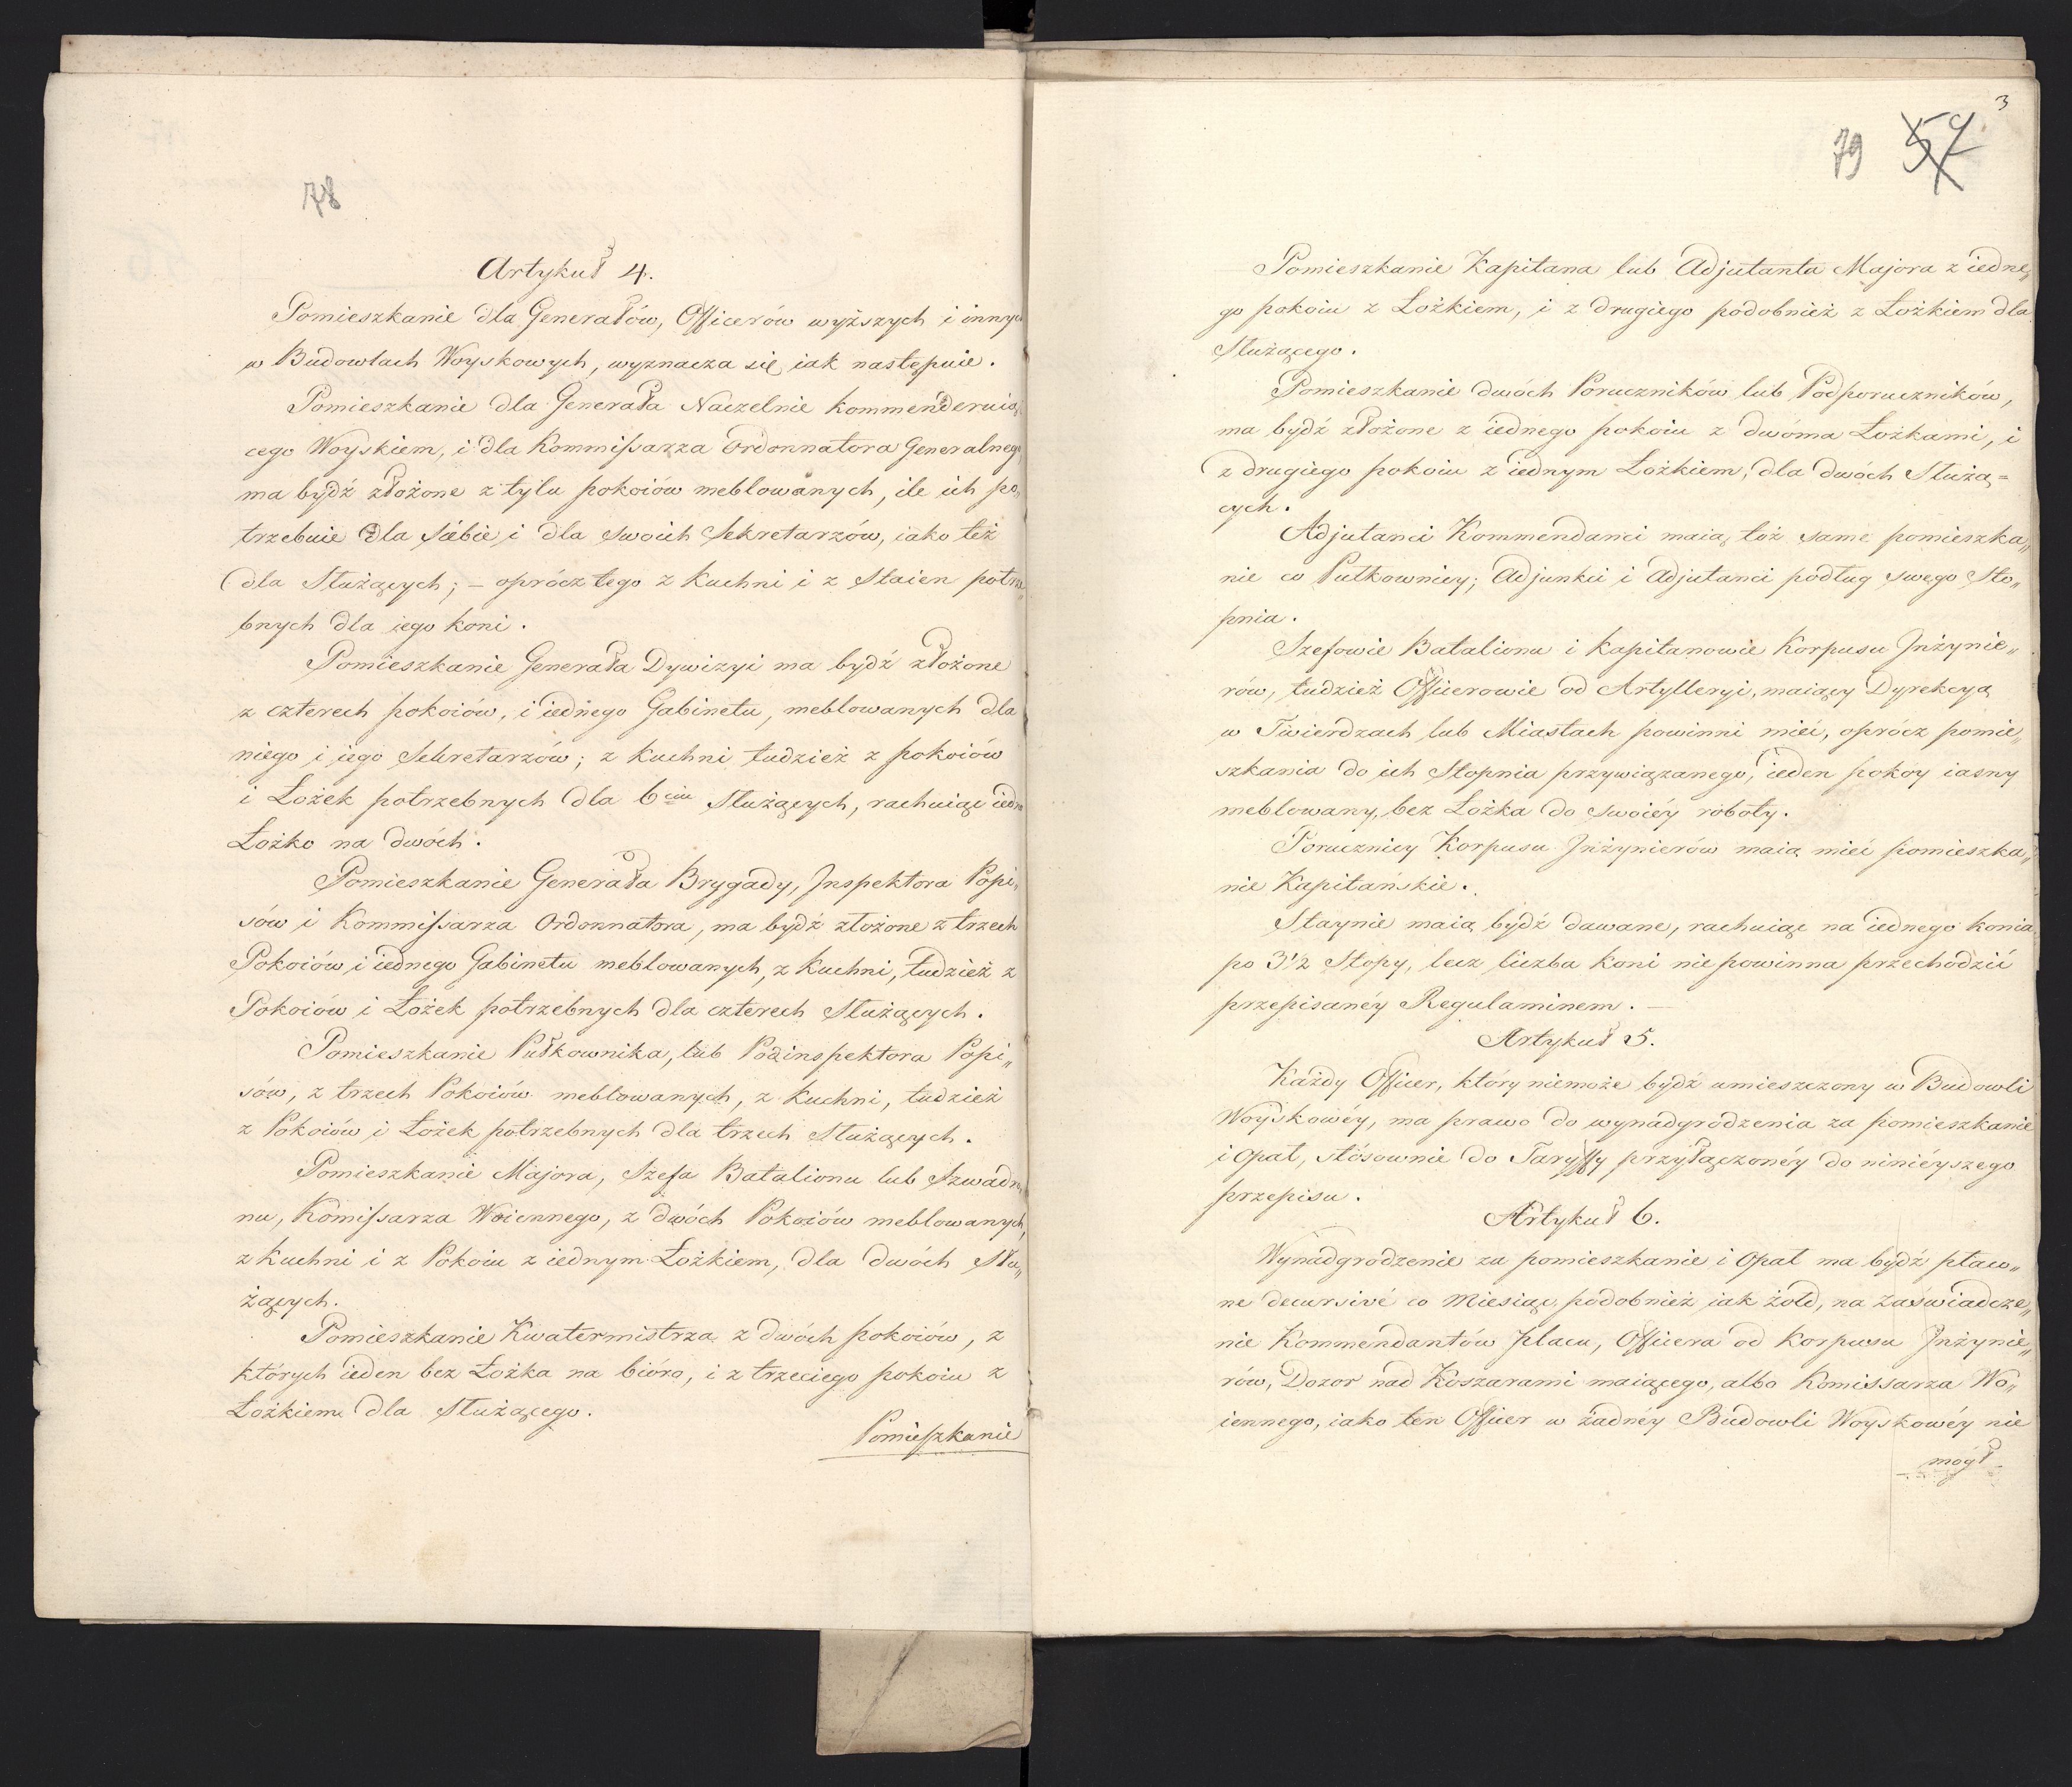 78
Artykuł 4.
Pomieszkanie dla Generałów, Officerów wyższych i innych
w Budowlach Woyskowych, wyznacza się iak następuie.
Pomieszkanie dla Generała Naczelnie kommenderuią„
cego Woyskiem, i dla Kommissarza Ordonnatora Generalnego,
ma bydź złożone z tylu pokoiów meblowanych, ile ich po„
trzebuie dla siebie i dla swoich Sekretarzów, iako też
dla Służących; – oprócz tego z kuchni i z Staien potrze„
bnych dla iego koni.
Pomieszkanie Generała Dywizyi ma bydź złożone
z czterech pokoiów, i iednego Gabinetu, meblowanych dla
niego i iego Sekretarzów; z kuchni tudzież z pokoiów
i Łożek potrzebnych dla 6ciu Służących, rachuiąc iedno
Łożko na dwóch.
Pomieszkanie Generała Brygady, Inspektora Popi„
sów i Kommissarza Ordonnatora, ma bydź złożone z trzech
Pokoiów i iednego Gabinetu meblowanych, z kuchni, tudzież z
Pokoiów i Łożek potrzebnych dla czterech Służących.
Pomieszkanie Pułkownika, lub Podinspektora Popi„
sów, z trzech Pokoiów meblowanych, z kuchni, tudzież
z Pokoiów i Łożek potrzebnych dla trzech Służących.
Pomieszkanie Majora, Szefa Batalionu lub Szwadro„
nu, Komissarza Woiennego, z dwóch Pokoiów meblowanych,
z kuchni i z Pokoiu z iednym Łożkiem, dla dwóch Słu„
żących.
Pomieszkanie Kwatermistrza z dwóch pokoiów, z
których ieden bez Łożka na bióro, i z trzeciego pokoiu z
Łożkiem dla Służącego.
Pomieszkanie
3
79 57
Pomieszkanie Kapitana lub Adjutanta Majora z iedne„
go pokoiu z Łożkiem, i z drugiego podobnież z Łożkiem dla
Służącego.
Pomieszkanie dwóch Poruczników lub Podporuczników,
ma bydź złożone z iednego pokoiu z dwóma Łożkami, i
z drugiego pokoiu z iednym Łożkiem, dla dwóch Służą=
cych.
Adjutanci Kommendanci maią toż same pomieszka„
nie co Pułkownicy; Adjunkci i Adjutanci podług swego Sto„
pnia.
Szefowie Batalionu i Kapitanowie Korpusu Inżynie„
rów, tudzież Officerowie od Artylleryi, maiący Dyrekcyą
w Twierdzach lub Miastach powinni mieć, oprócz pomie„
szkania do ich Stopnia przywiązanego, ieden pokóy iasny
meblowany, bez Łożka do swoiéy roboty.
Porucznicy Korpusu Inżynierów maią mieć pomieszka„
nie Kapitańskie.
Staynie maią bydź dawane, rachuiąc na iednego konia
po 3½ Stopy, lecz liczba koni nie powinna przechodzić
przepisanéy Regulaminem. —
Artykuł 5.
Każdy Officer, który niemoże bydź umieszczony w Budowli
Woyskowéy, ma prawo do wynadgrodzenia za pomieszkanie
i Opał, stósownie do Taryffy przyłączonéy do niniéyszego
przepisu.
Artykuł 6.
Wynadgrodzenie za pomieszkanie i Opał ma bydź płaco„
ne decursivé co Miesiąc podobnież iak żołd, na zaświadcze„
nie Kommendantów placu, Officera od Korpusu Inżynie„
rów, Dozor nad Koszarami maiącego, albo Komissarza Wo„
iennego, iako ten Officer w żadnéy Budowli Woyskowéy nie
mógł